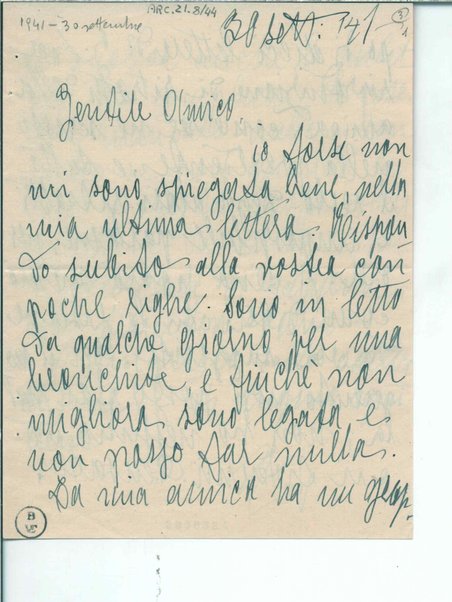 ARC.21.8/44
1941-30 settembre
30 sett. 41
Gentile Amico,
io forse non
mi sono spiegata bene, nella
mia ultima lettera. Rispon
do subito alla vostra con
poche righe. Sono in letto
da qualche giorno per una
bronchite, e finchè non
migliora sono legata e
non posso far nulla.
La mia amica ha un